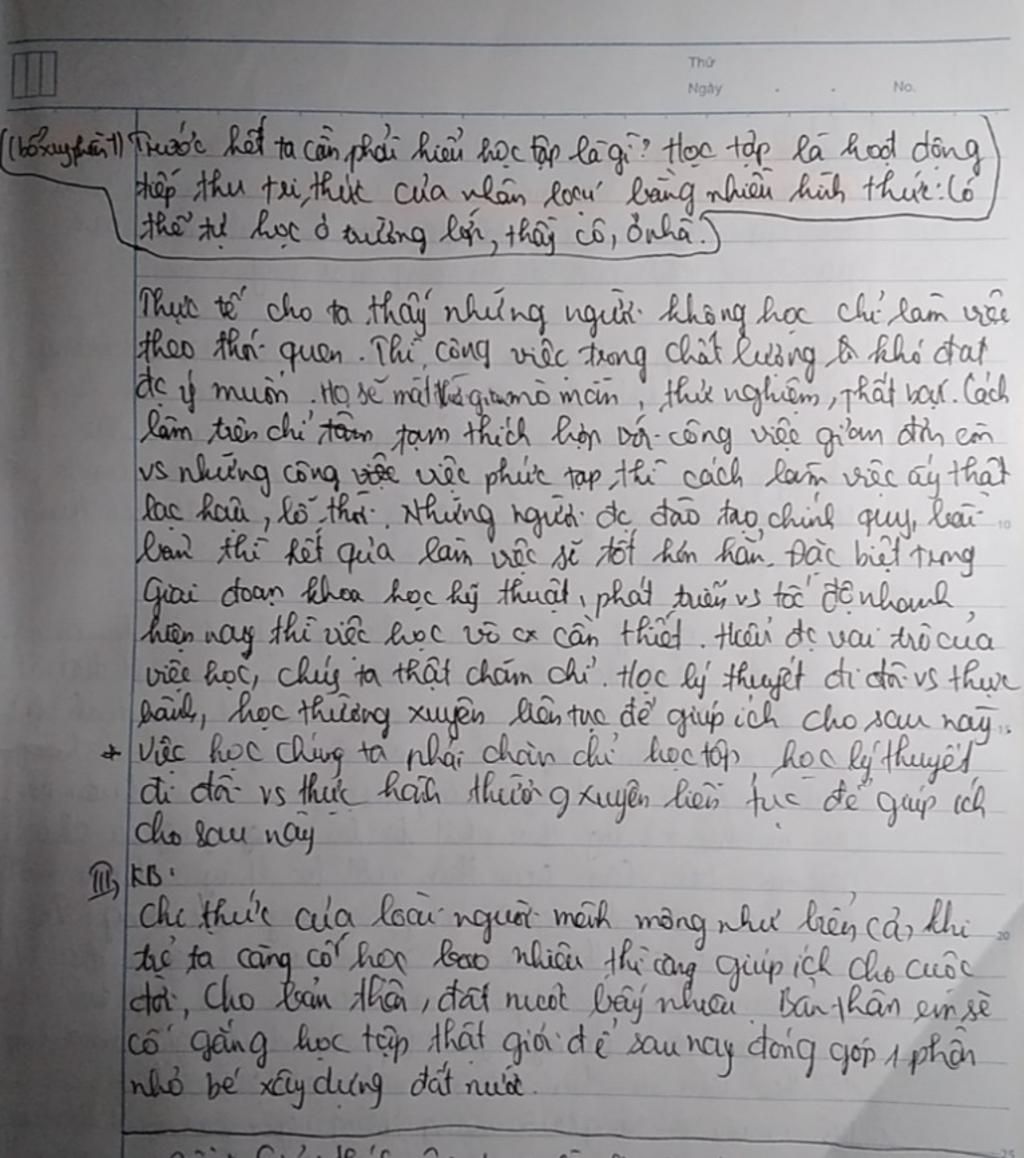 Thứ
Ngày . . No.
(bổ xung phần 1) Trước hết ta cần phải hiểu học tập là gì? Học tập là hoạt động
tiếp thu tri thức của nhân loại bằng nhiều hình thức: Có
thể tự học ở trường lớp, thầy cô, ở nhà.
Thực tế cho ta thấy những người không học chỉ làm việc
theo thói quen. Thì công việc trong chất lượng là khó đạt
đc ý muốn. Họ sẽ mất thời gian mò mẫn, thử nghiệm, thất bại. Cách
làm trên chỉ tạm thích hợp với công việc giản đơn còn
vs những công việc phức tạp thì cách làm việc ấy thật
lạc hậu, lỗi thời. Những người đc đào tạo chính quy, bài
bản thì kết quả làm việc sẽ tốt hơn hẳn. Đặc biệt trong
10
Giai đoạn khoa học kỹ thuật, phát triển vs tốc độ nhanh
hiện nay thì việc học vô cx cần thiết. Hiểu đc vai trò của
việc học, chúg ta thật chăm chỉ. Học lý thuyết đi đôi vs thực
hành, học thường xuyên liên tục để giúp ích cho sau này
15
* Việc học chúng ta phải chăn chỉ học tập, học lý thuyết
đi đôi vs thực hành thường xuyên liên tục để giúp ích
cho sau này
III, KB:
Chi thức của loài người mênh mông như biển cả, khi
20
ta càng cố học bao nhiêu thì càng giúp ích cho cuộc
đời, cho bản thân, đất nước bấy nhiêu. Bản thân em sẽ
cố gắng học tập thật giỏi để sau này đóng góp 1 phần
nhỏ bé xây dựng đất nước.
25